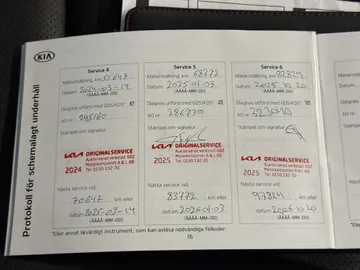 KIA
Protokoll för schemalagt underhåll
Service 4
Mätarställning, km 55647
datum 2024-03-14
(ÅÅÅÅ-MM-DD)
Diagnos utförd med GDS/KDS*
AO nr
Stämpel och signatur
KIA ORIGINALSERVICE
2024
Tel 0150 132 70
Nästa service vid:
70647 km eller
datum 2025-03-14
(ÅÅÅÅ-MM-DD)
Service 5
Mätarställning, km 68772
datum 2025-01-03
(ÅÅÅÅ-MM-DD)
Diagnos utförd med GDS/KDS*
AO nr 286730
Stämpel och signatur
KIA ORIGINALSERVICE
Auktoriserad verkstad 682
Motorkompaniet A & L AB
2025 Tel 0150 132 70
Nästa service vid:
83772 km eller
datum 2026-01-03
(ÅÅÅÅ-MM-DD)
Service 6
Mätarställning, km 82824
datum 2025 10 20
(ÅÅÅÅ-MM-DD)
Diagnos utförd med GDS/KDS*
AO nr
Stämpel och signatur
KIA ORIGINALSERVICE
2025 Tel 0150 132 70
Nästa service vid:
97824 km eller
datum 2026 10 20
(ÅÅÅÅ-MM-DD)
*Eller annat likvärdigt instrument, som kan avläsa nödvändiga felkoder.
16